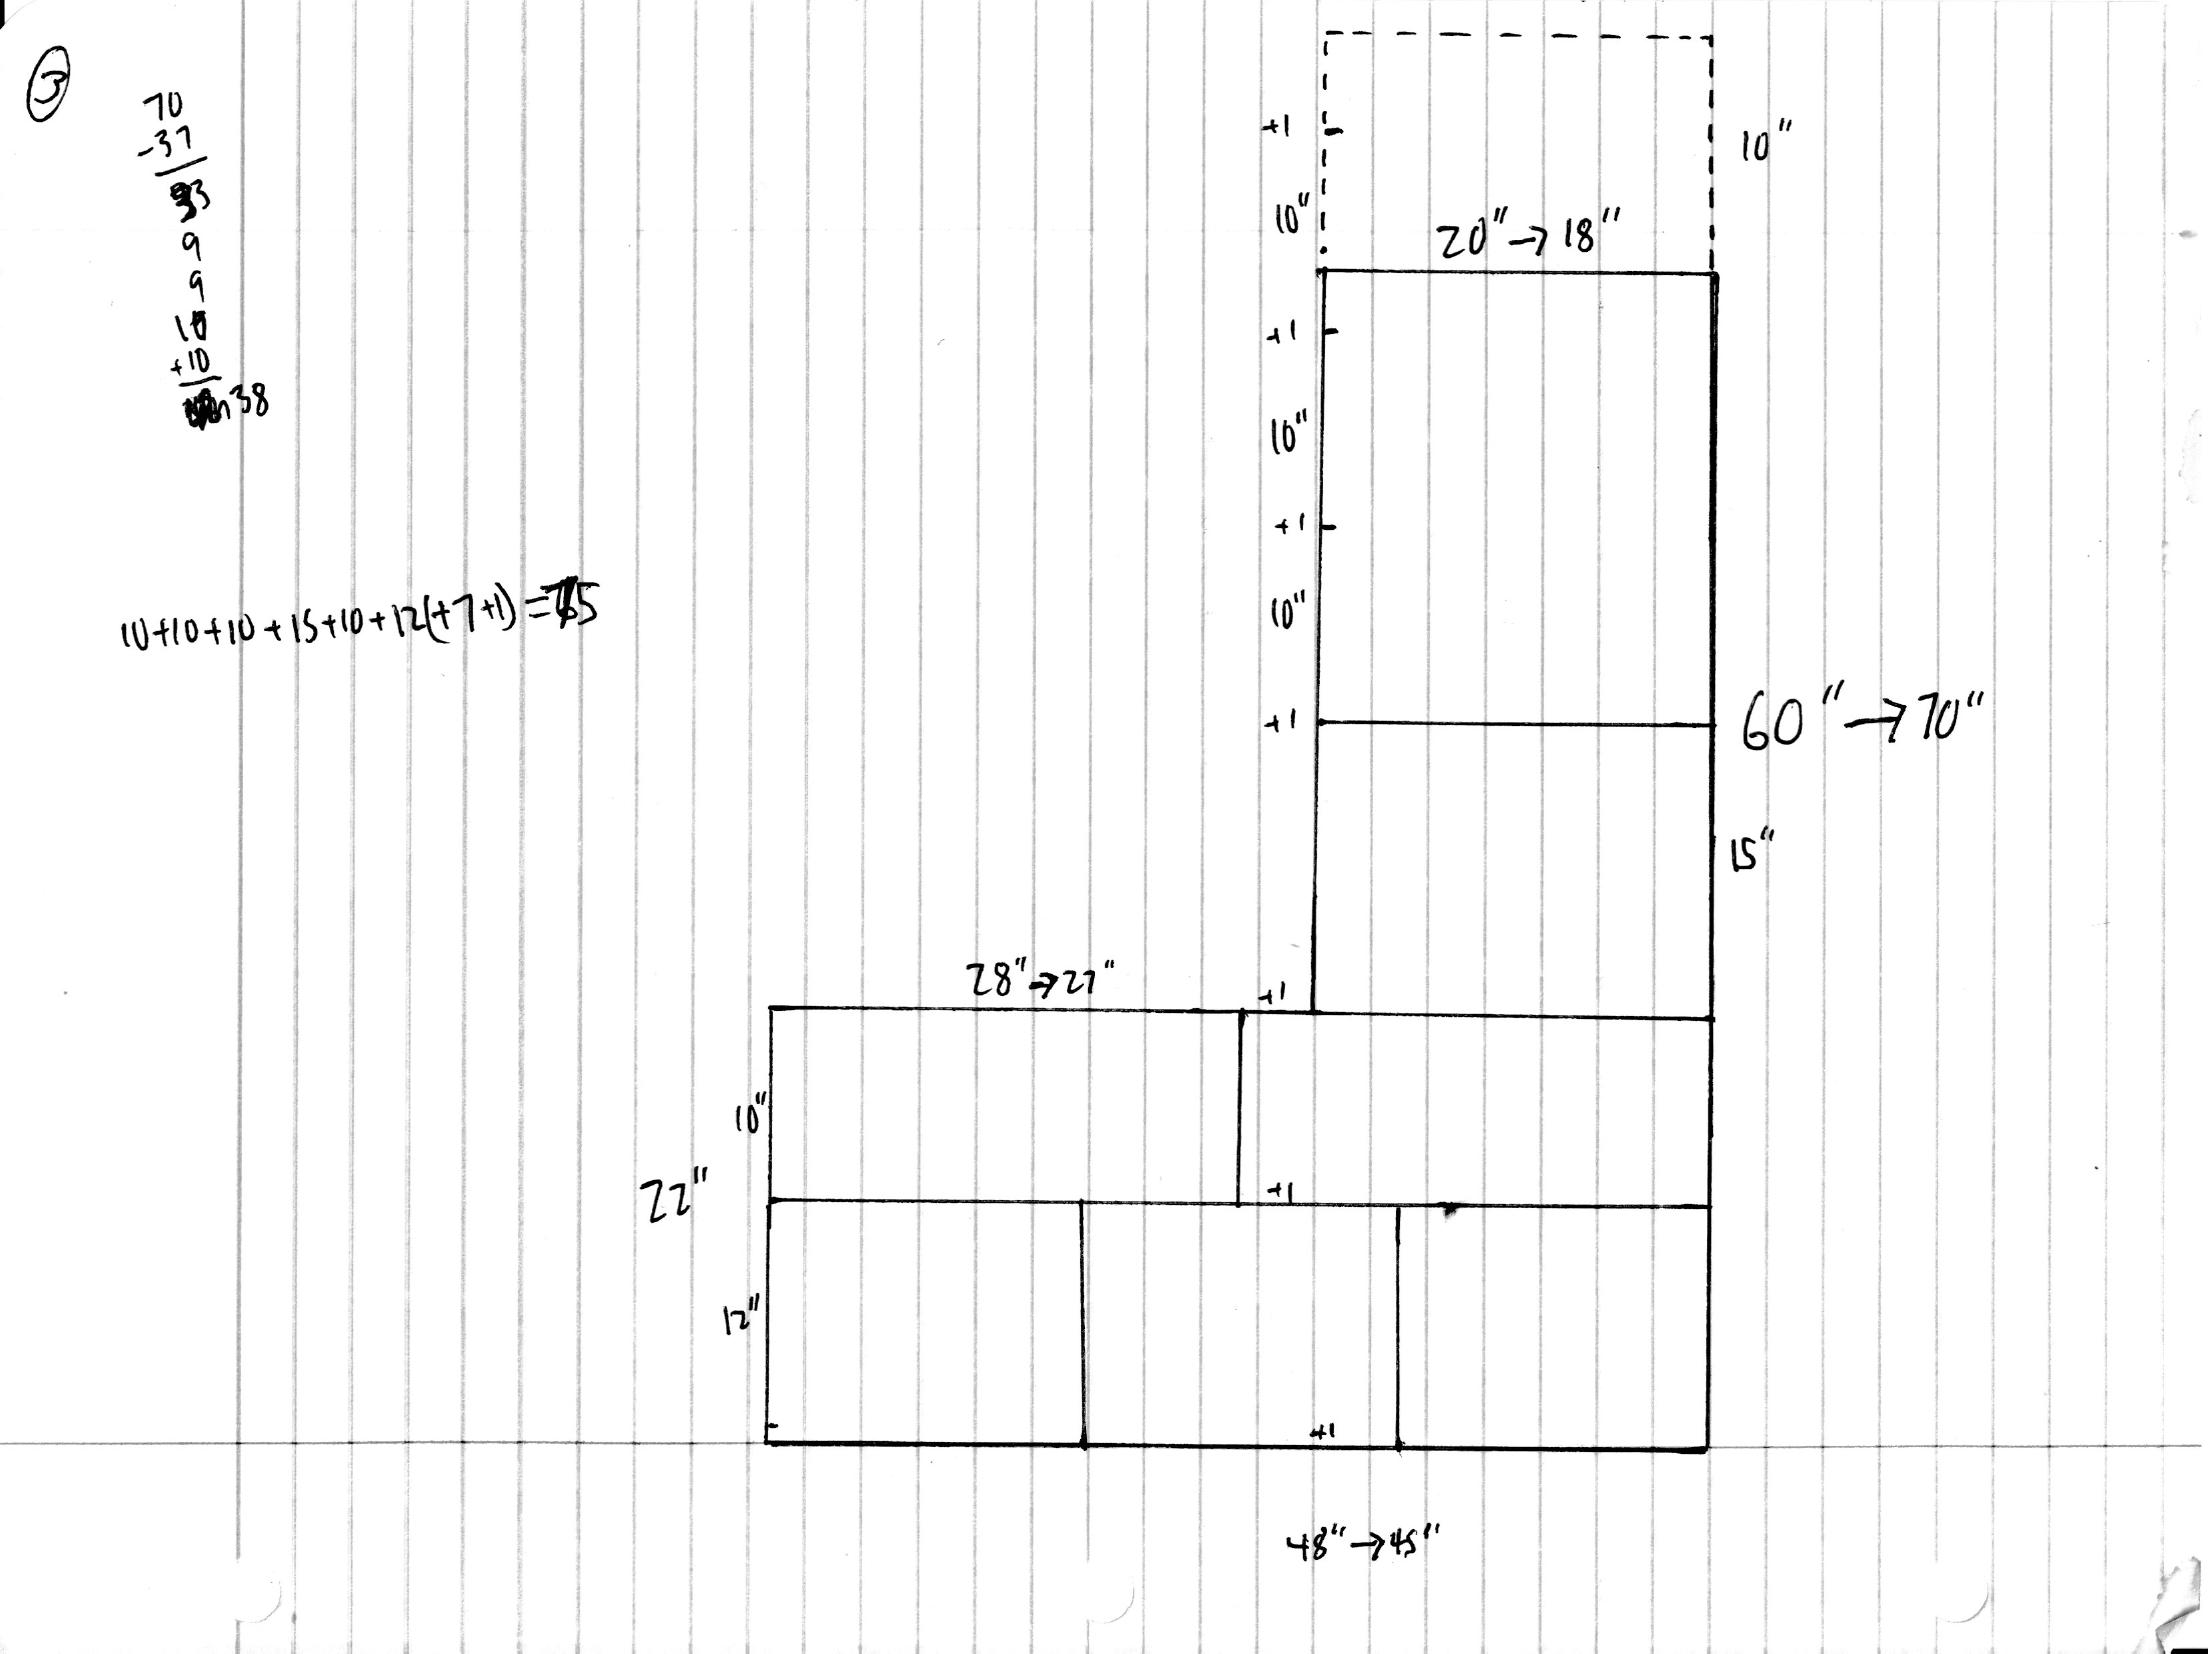 3
70
-37
33
9
9
10
+10
38
10+10+10+15+10+12(+7+1)=75
+1
10"
10"
20"→18"
+1
10"
+1
10"
+1
60"→70"
15"
28"→27"
+1
10"
22"
+1
12"
+1
48"→45"